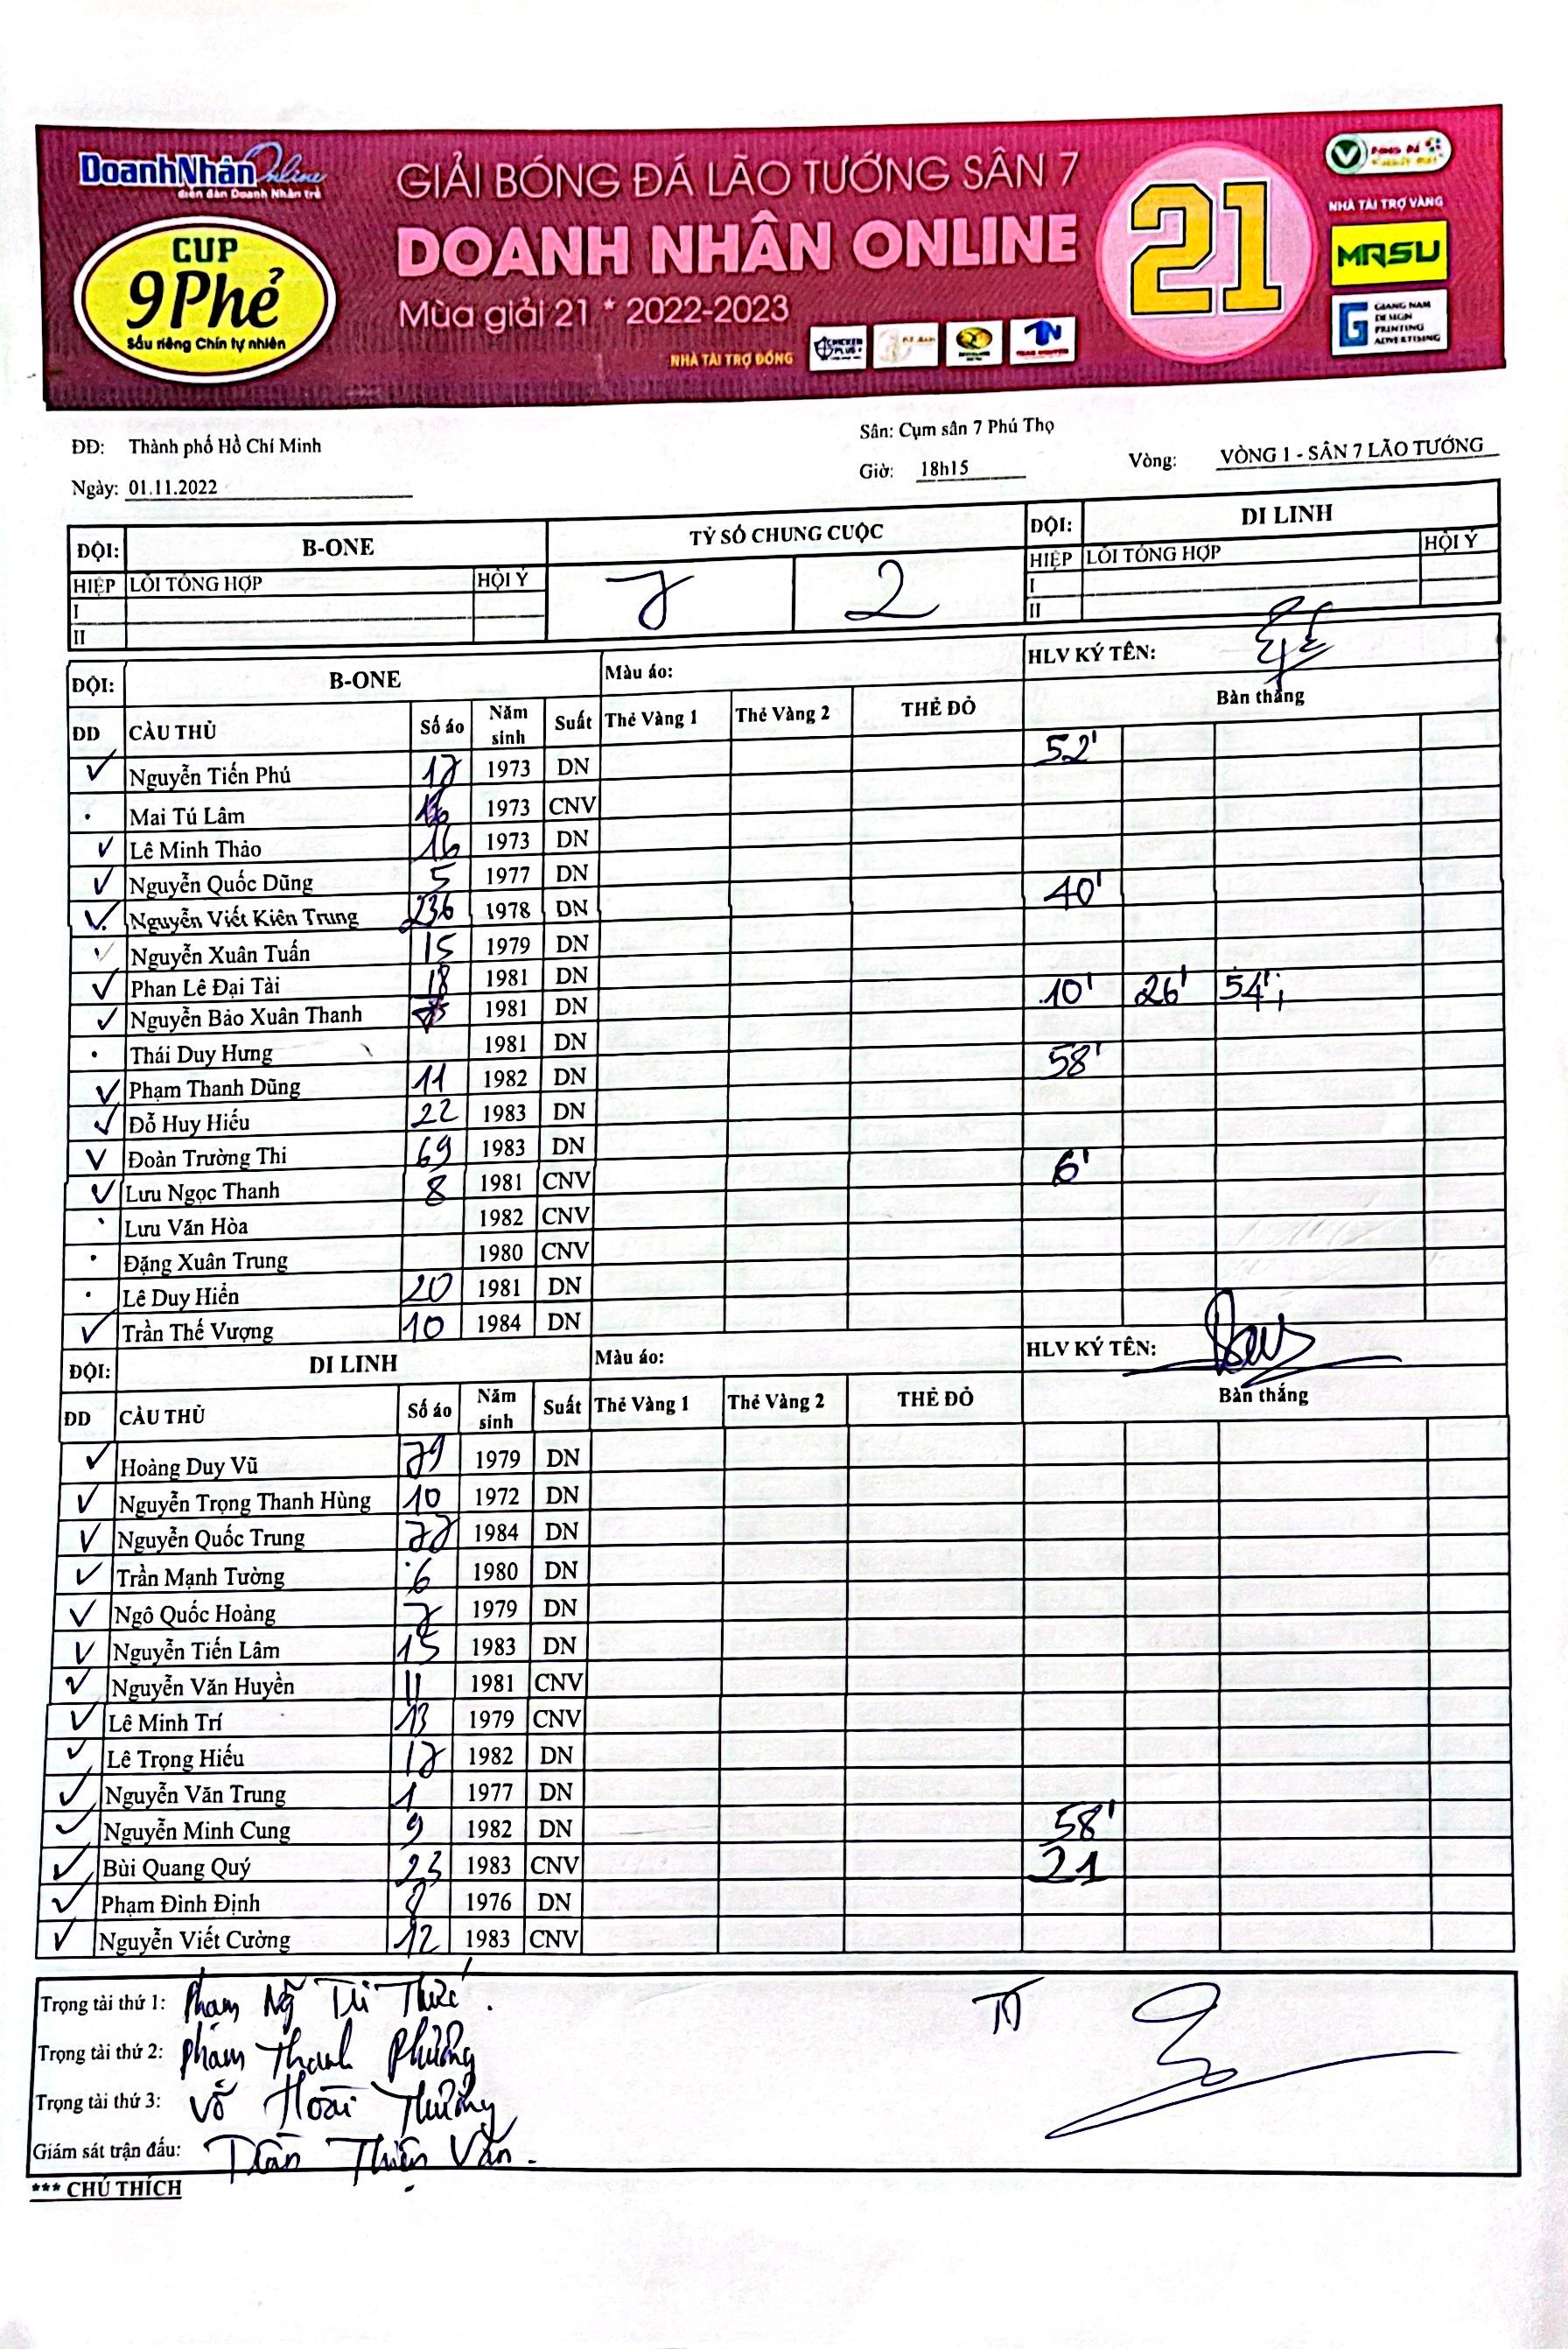 DoanhNhân Online
diễn đàn Doanh Nhân trẻ
CUP
9Phẻ
Sầu riêng Chín tự nhiên
GIẢI BÓNG ĐÁ LÃO TƯỚNG SÂN 7
DOANH NHÂN ONLINE
Mùa giải 21 * 2022-2023
NHÀ TÀI TRỢ ĐỒNG
21
NHÀ TÀI TRỢ VÀNG
MRSU
GIANG NAM
DESIGN
PRINTING
ADVERTISING
ĐĐ: Thành phố Hồ Chí Minh
Sân: Cụm sân 7 Phú Thọ
Ngày: 01.11.2022
Giờ: 18h15
Vòng: VÒNG 1 - SÂN 7 LÃO TƯỚNG
ĐỘI: B-ONE TỶ SỐ CHUNG CUỘC ĐỘI: DI LINH
HIỆP LỖI TỔNG HỢP HỘI Ý 7 2 HIỆP LỖI TỔNG HỢP HỘI Ý
I I
II II
ĐỘI: B-ONE Màu áo: HLV KÝ TÊN:
ĐD CẦU THỦ Số áo Năm sinh Suất Thẻ Vàng 1 Thẻ Vàng 2 THẺ ĐỎ Bàn thắng
✓ Nguyễn Tiến Phú 17 1973 DN 52'
. Mai Tú Lâm 1973 CNV
✓ Lê Minh Thảo 16 1973 DN
✓ Nguyễn Quốc Dũng 5 1977 DN
✓ Nguyễn Viết Kiên Trung 236 1978 DN 40'
✓ Nguyễn Xuân Tuấn 15 1979 DN
✓ Phan Lê Đại Tài 18 1981 DN
✓ Nguyễn Bảo Xuân Thanh 1981 DN 10' 26' 54'
. Thái Duy Hưng 1981 DN
✓ Phạm Thanh Dũng 11 1982 DN 58'
✓ Đỗ Huy Hiếu 22 1983 DN
✓ Đoàn Trường Thi 69 1983 DN
✓ Lưu Ngọc Thanh 8 1981 CNV 6'
. Lưu Văn Hòa 1982 CNV
. Đặng Xuân Trung 1980 CNV
. Lê Duy Hiển 20 1981 DN
✓ Trần Thế Vượng 10 1984 DN
ĐỘI: DI LINH Màu áo: HLV KÝ TÊN:
ĐD CẦU THỦ Số áo Năm sinh Suất Thẻ Vàng 1 Thẻ Vàng 2 THẺ ĐỎ Bàn thắng
✓ Hoàng Duy Vũ 79 1979 DN
✓ Nguyễn Trọng Thanh Hùng 10 1972 DN
✓ Nguyễn Quốc Trung 77 1984 DN
✓ Trần Mạnh Tường 6 1980 DN
✓ Ngô Quốc Hoàng 7 1979 DN
✓ Nguyễn Tiến Lâm 15 1983 DN
✓ Nguyễn Văn Huyền 11 1981 CNV
✓ Lê Minh Trí 13 1979 CNV
✓ Lê Trọng Hiếu 17 1982 DN
✓ Nguyễn Văn Trung 1 1977 DN
✓ Nguyễn Minh Cung 9 1982 DN 58'
✓ Bùi Quang Quý 23 1983 CNV 21
✓ Phạm Đình Định 8 1976 DN
✓ Nguyễn Viết Cường 12 1983 CNV
Trọng tài thứ 1: Phạm Ngũ Tri Thức.
Trọng tài thứ 2: Phạm Thanh Phường
Trọng tài thứ 3: Võ Hoài Thưởng
Giám sát trận đấu: Trần Thiện Văn.
*** CHÚ THÍCH